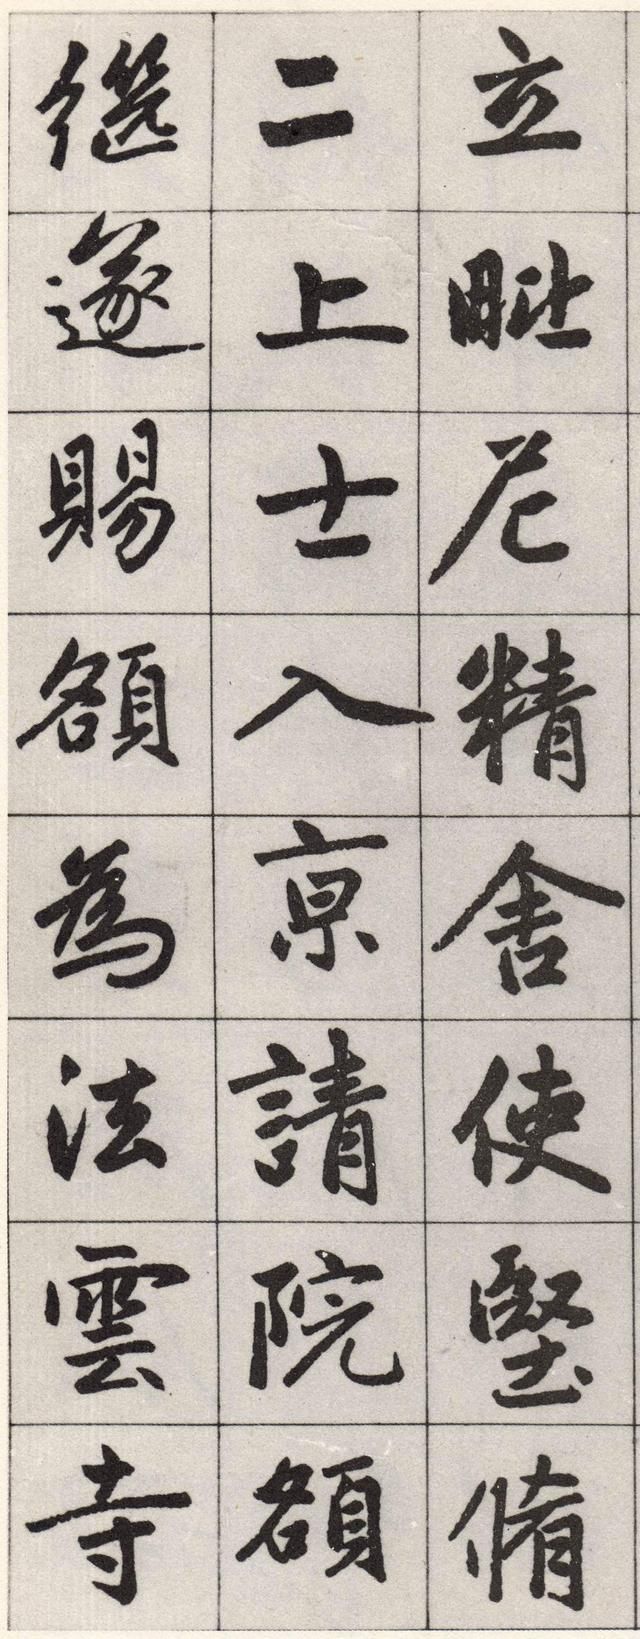 立毗尼精舍使堅脩
二上士入京請院額
繼遂賜額為法雲寺